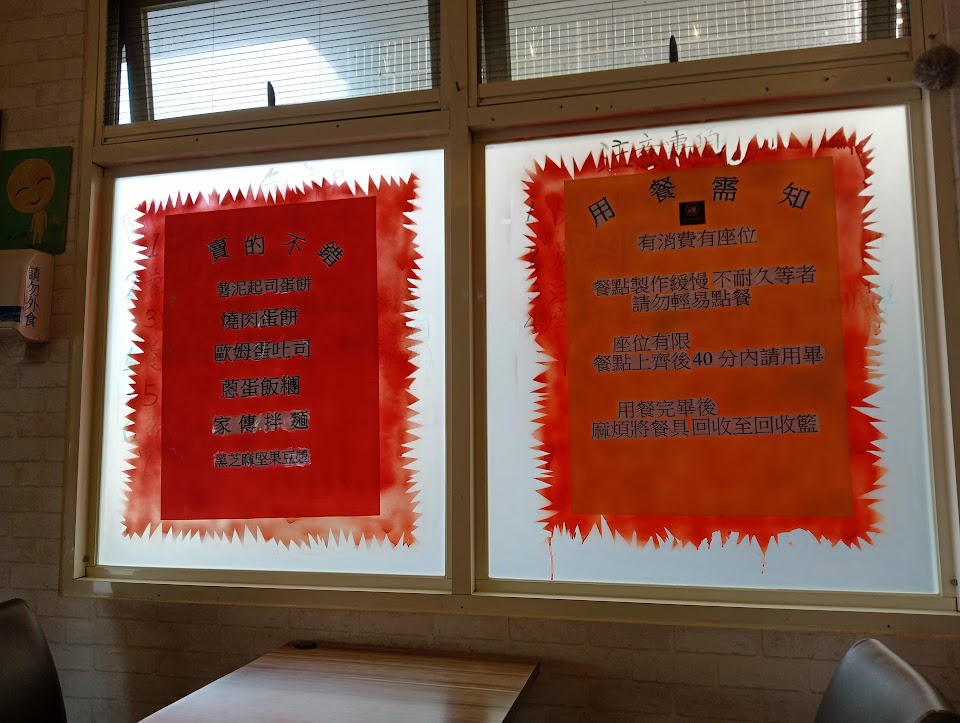 請勿外食
賣的不錯
薯泥起司蛋餅
燒肉蛋餅
歐姆蛋吐司
蔥蛋飯糰
家傳拌麵
黑芝麻堅果豆漿
用餐需知
有消費有座位
餐點製作緩慢 不耐久等者
請勿輕易點餐
座位有限
餐點上齊後40 分內請用畢
用餐完畢後
麻煩將餐具回收至回收籃